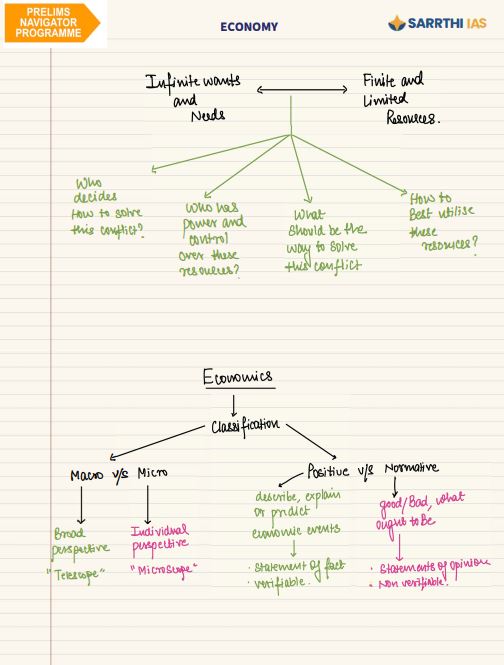 PRELIMS
NAVIGATOR
PROGRAMME
ECONOMY
SARRTHI IAS
Infinite wants
and
Needs
Finite and
Limited
Resources.
Who
decides
How to solve
this conflict?
Who has
power and
control
over these
resources?
What
should be the
way to solve
this conflict
How to
Best utilise
these
resources?
Economics
Classification
Macro v/s Micro
Broad
perspective
"Telescope"
Individual
perspective
"Microscope"
Positive v/s Normative
describe, explain
or predict
economic events
. Statement of fact
. verifiable.
good/Bad, what
ought to be
. Statements of opinion
. Non verifiable.